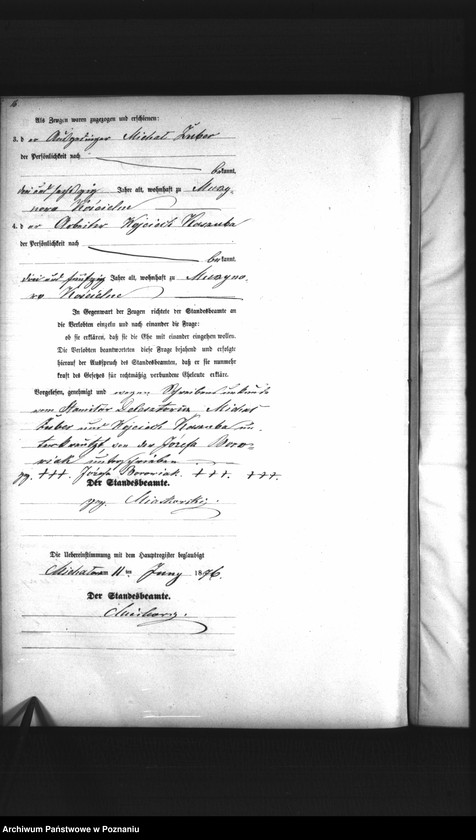 Als Zeugen waren zugezogen und erschienen:
3. d er Michal Zuber
der Persönlichkeit nach
bekannt,
drei und sechszig Jahre alt, wohnhaft zu Murzy-
nowo Kościelne
4. d er Arbeiter Wojciech Kaszuba
der Persönlichkeit nach
bekannt,
drei und fünfzig Jahre alt, wohnhaft zu Murzyno-
wo Kościelne
In Gegenwart der Zeugen richtete der Standesbeamte an
die Verlobten einzeln und nach einander die Frage:
ob sie erklären, daß sie die Ehe mit einander eingehen wollen.
Die Verlobten beantworteten diese Frage bejahend und erfolgte
hierauf der Ausspruch des Standesbeamten, daß er sie nunmehr
kraft des Gesetzes für rechtmäßig verbundene Eheleute erkläre.
Vorgelesen, genehmigt und wegen Schreibensunkunde
vom Michal
Zuber und Wojciech Kaszuba un-
terkreuzt von der Józefa Boro-
wiak unterschrieben
gez. +++ Józefa Borowiak. +++. +++.
Der Standesbeamte.
gez.
Die Uebereinstimmung mit dem Hauptregister beglaubigt
am 11 ten Juny 1876.
Der Standesbeamte.
Archiwum Państwowe w Poznaniu